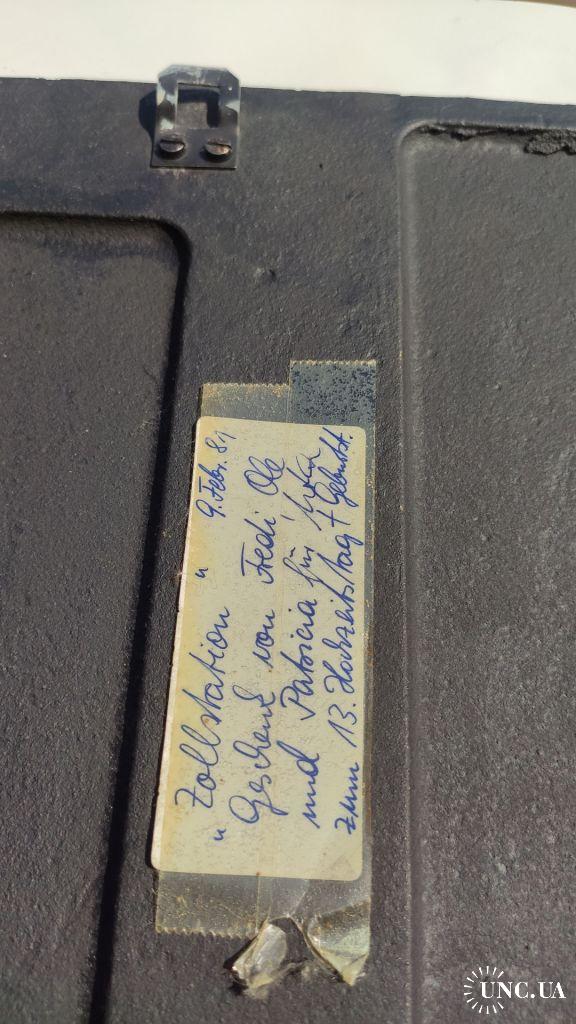 "Zollstation" 9. Febr. 81
Geschenk von Fredi Ole
und Patricia für
zum 13. Hochzeitstag + Geburtst.
UNC.UA